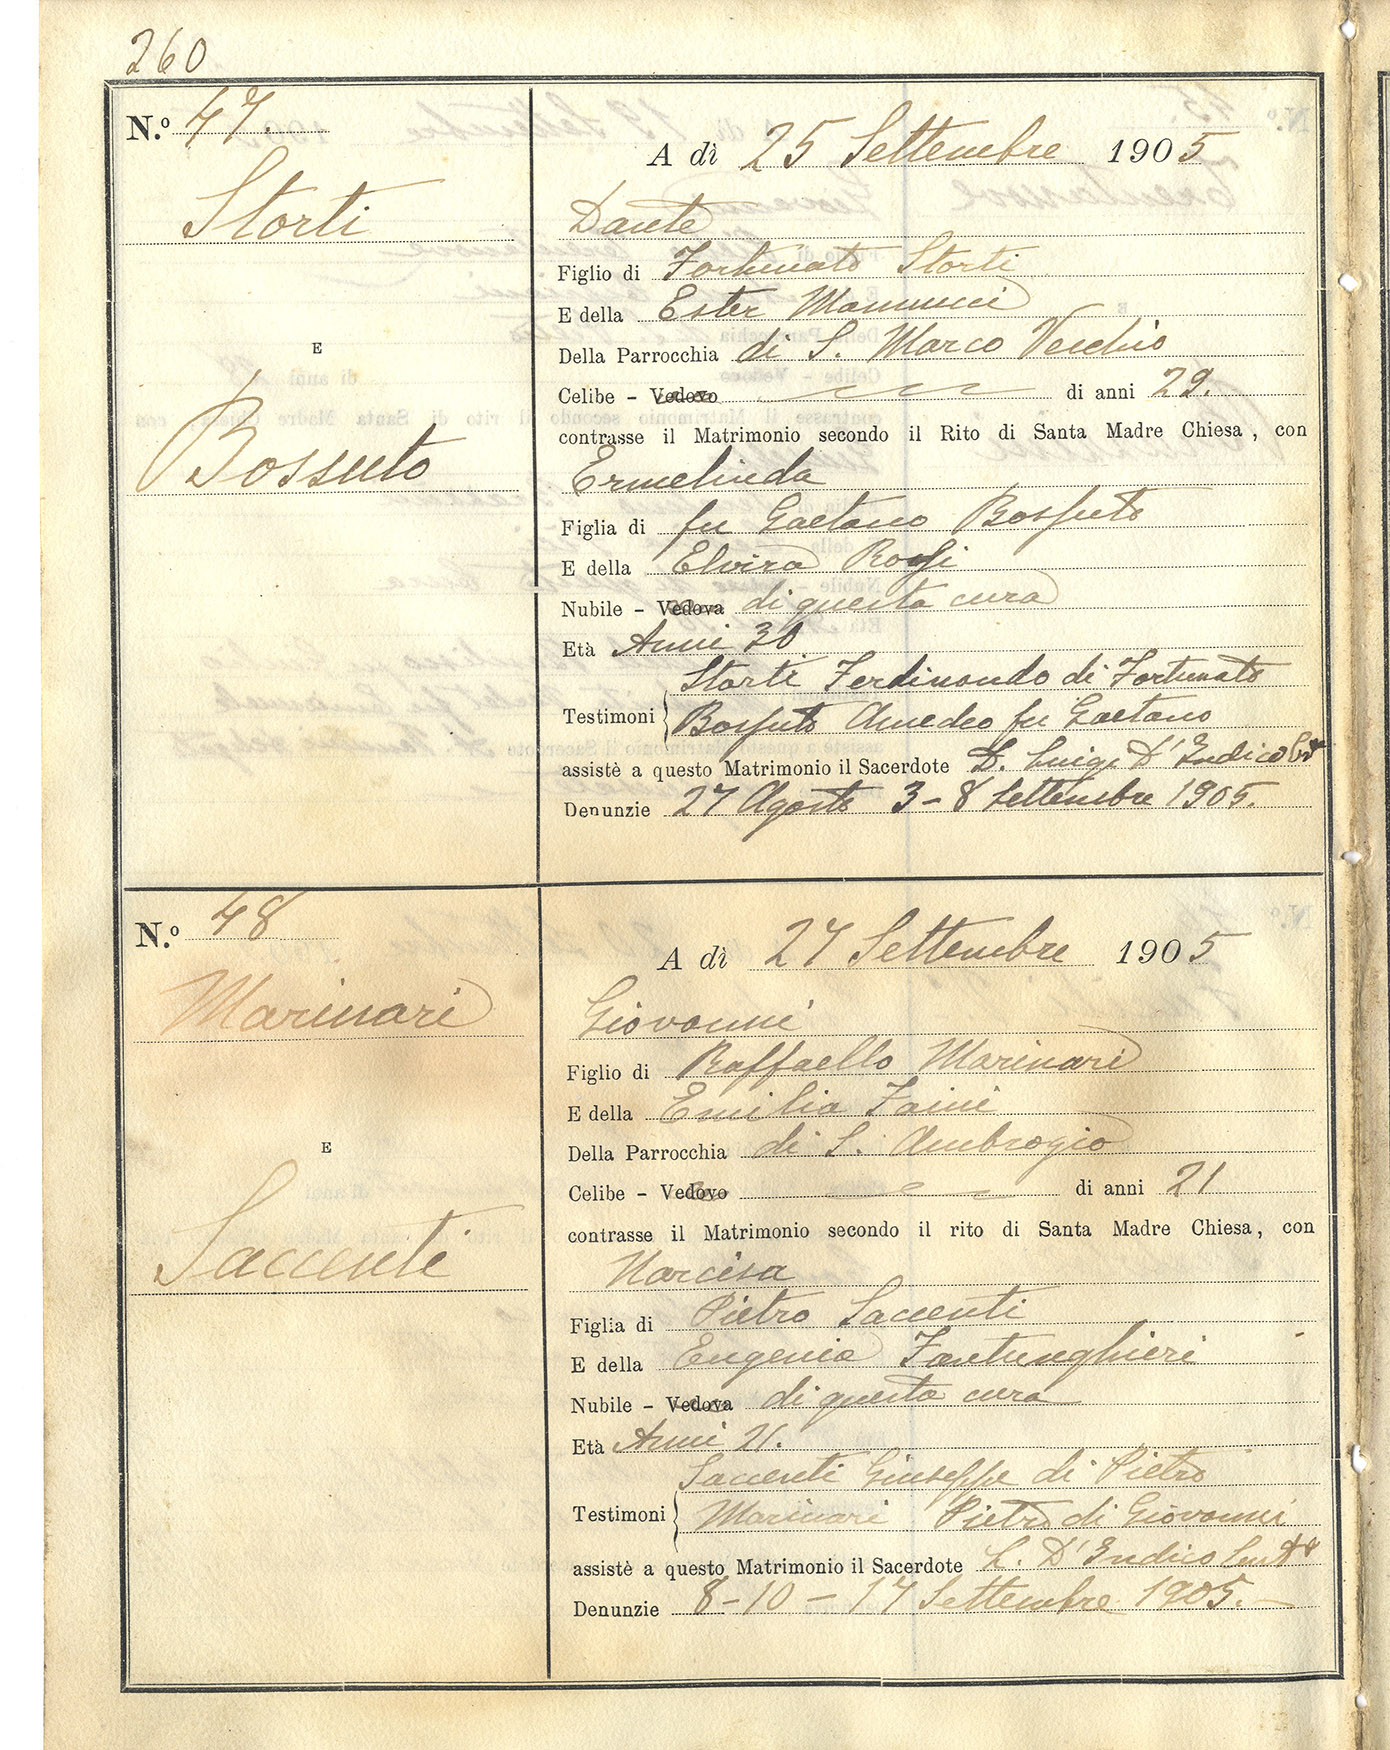 260
N.º 47.
Storti
E
Bossuto
A dì 25 Settembre 1905
Dante
Figlio di Fortunato Storti
E della Ester Mannucci
Della Parrocchia di S. Marco Vecchio
Celibe - Vedovo di anni 29.
contrasse il Matrimonio secondo il Rito di Santa Madre Chiesa, con
Ermelinda
Figlia di fu Gaetano Bossuto
E della Elvira Rossi
Nubile - Vedova di questa cura
Età Anni 30
Testimoni Storti Ferdinando di Fortunato
Bossuto Amedeo fu Gaetano
assistè a questo Matrimonio il Sacerdote D. Luigi D'Indico
Denunzie 27 Agosto 3-8 Settembre 1905.
N.º 48
Marinari
E
Saccenti
A dì 27 Settembre 1905
Giovanni
Figlio di Raffaello Marinari
E della Emilia Faini
Della Parrocchia di S. Ambrogio
Celibe - Vedovo di anni 21
contrasse il Matrimonio secondo il rito di Santa Madre Chiesa, con
Narcisa
Figlia di Pietro Saccenti
E della Eugenia
Nubile - Vedova di questa cura
Età Anni 21.
Testimoni Saccenti Giuseppe di Pietro
Marinari Pietro di Giovanni
assistè a questo Matrimonio il Sacerdote L. D'Indico
Denunzie 8-10-17 Settembre 1905.